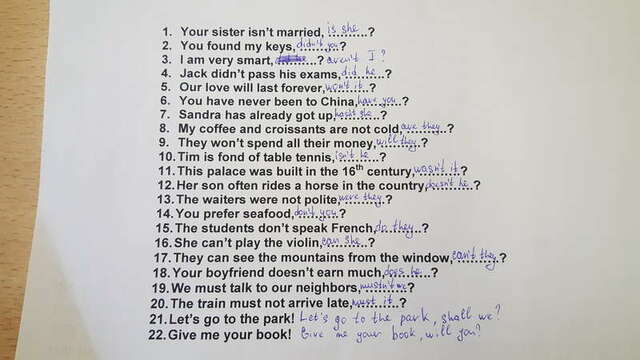 1. Your sister isn't married, is she..?
2. You found my keys, didn't you..?
3. I am very smart, ........? aren't I?
4. Jack didn't pass his exams, did he..?
5. Our love will last forever, won't it..?
6. You have never been to China, have you..?
7. Sandra has already got up, hasn't she..?
8. My coffee and croissants are not cold, are they..?
9. They won't spend all their money, will they..?
10. Tim is fond of table tennis, isn't he..?
11. This palace was built in the 16th century, wasn't it..?
12. Her son often rides a horse in the country, doesn't he..?
13. The waiters were not polite, were they..?
14. You prefer seafood, don't you..?
15. The students don't speak French, do they..?
16. She can't play the violin, can she..?
17. They can see the mountains from the window, can't they..?
18. Your boyfriend doesn't earn much, does he..?
19. We must talk to our neighbors, mustn't we?
20. The train must not arrive late, must it..?
21. Let's go to the park! Let's go to the park, shall we?
22. Give me your book! Give me your book, will you?